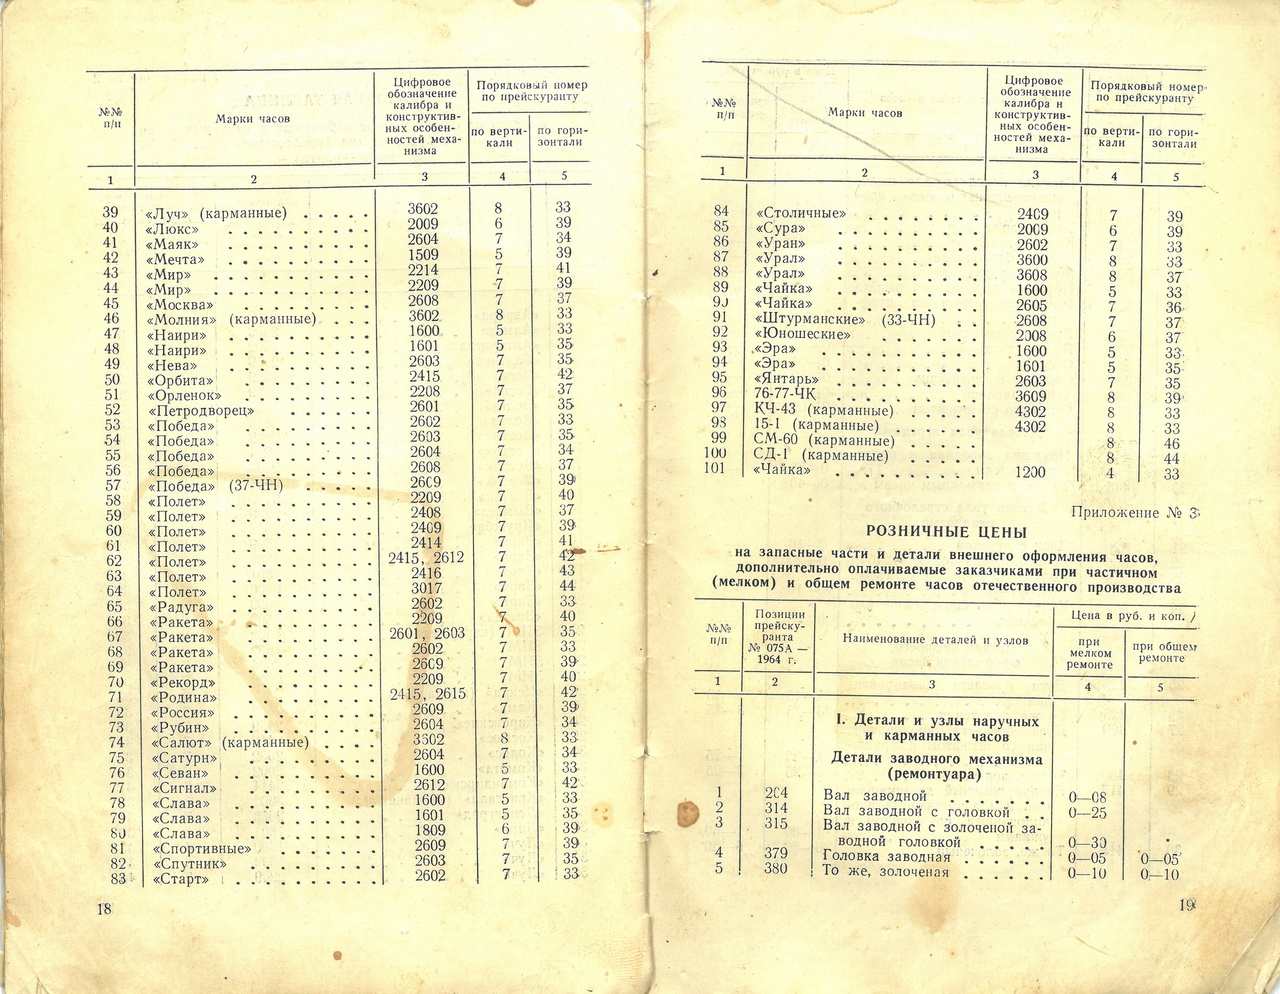 №№ п/п | Марки часов | Цифровое обозначение калибра и конструктив- ных особен- ностей меха- низма | Порядковый номер по прейскуранту
по верти- кали | по гори- зонтали
1 | 2 | 3 | 4 | 5
39 «Луч» (карманные) . . . . . 3602 8 33
40 «Люкс» . . . . . . . . . 2009 6 39
41 «Маяк» . . . . . . . . . 2604 7 34
42 «Мечта» . . . . . . . . . 1509 5 39
43 «Мир» . . . . . . . . . . 2214 7 41
44 «Мир» . . . . . . . . . . 2209 7 39
45 «Москва» . . . . . . . . . 2608 7 37
46 «Молния» (карманные) . . . 3602 8 33
47 «Наири» . . . . . . . . . 1600 5 33
48 «Наири» . . . . . . . . . 1601 5 35
49 «Нева» . . . . . . . . . 2603 7 35
50 «Орбита» . . . . . . . . 2415 7 42
51 «Орленок» . . . . . . . . 2208 7 37
52 «Петродворец» . . . . . . 2601 7 35
53 «Победа» . . . . . . . . 2602 7 33
54 «Победа» . . . . . . . . 2603 7 35
55 «Победа» . . . . . . . . 2604 7 34
56 «Победа» . . . . . . . . 2608 7 37
57 «Победа» (37-ЧН) . . . . . 2609 7 39
58 «Полет» . . . . . . . . . 2209 7 40
59 «Полет» . . . . . . . . . 2408 7 37
60 «Полет» . . . . . . . . . 2409 7 39
61 «Полет» . . . . . . . . . 2414 7 41
62 «Полет» . . . . . . . . . 2415, 2612 7 42
63 «Полет» . . . . . . . . . 2416 7 43
64 «Полет» . . . . . . . . . 3017 7 44
65 «Радуга» . . . . . . . . . 2602 7 33
66 «Ракета» . . . . . . . . . 2209 7 40
67 «Ракета» . . . . . . . . . 2601, 2603 7 35
68 «Ракета» . . . . . . . . . 2602 7 33
69 «Ракета» . . . . . . . . . 2609 7 39
70 «Рекорд» . . . . . . . . . 2209 7 40
71 «Родина» . . . . . . . . . 2415, 2615 7 42
72 «Россия» . . . . . . . . . 2609 7 39
73 «Рубин» . . . . . . . . . 2604 7 34
74 «Салют» (карманные) . . . . 3602 8 33
75 «Сатурн» . . . . . . . . . 2604 7 34
76 «Севан» . . . . . . . . . 1600 5 33
77 «Сигнал» . . . . . . . . . 2612 7 42
78 «Слава» . . . . . . . . . 1600 5 33
79 «Слава» . . . . . . . . . 1601 5 35
80 «Слава» . . . . . . . . . 1809 6 39
81 «Спортивные» . . . . . . . 2609 7 39
82 «Спутник» . . . . . . . . 2603 7 35
83 «Старт» . . . . . . . . . 2602 7 33
18
№№ п/п | Марки часов | Цифровое обозначение калибра и конструктив- ных особен- ностей меха- низма | Порядковый номер по прейскуранту
по верти- кали | по гори- зонтали
1 | 2 | 3 | 4 | 5
84 «Столичные» . . . . . . . . 2409 7 39
85 «Сура» . . . . . . . . . . 2009 6 39
86 «Уран» . . . . . . . . . . 2602 7 33
87 «Урал» . . . . . . . . . . 3600 8 33
88 «Урал» . . . . . . . . . . 3608 8 37
89 «Чайка» . . . . . . . . . 1600 5 33
90 «Чайка» . . . . . . . . . 2605 7 36
91 «Штурманские» (33-ЧН) . . 2608 7 37
92 «Юношеские» . . . . . . . 2008 6 37
93 «Эра» . . . . . . . . . . 1600 5 33
94 «Эра» . . . . . . . . . . 1601 5 35
95 «Янтарь» . . . . . . . . . 2603 7 35
96 76-77-ЧК . . . . . . . . . 3609 8 39
97 КЧ-43 (карманные) . . . . . 4302 8 33
98 15-1 (карманные) . . . . . . 4302 8 33
99 СМ-60 (карманные) . . . . . 8 46
100 СД-1 (карманные) . . . . . 8 44
101 «Чайка» . . . . . . . . . 1200 4 33
Приложение № 3
РОЗНИЧНЫЕ ЦЕНЫ
на запасные части и детали внешнего оформления часов,
дополнительно оплачиваемые заказчиками при частичном
(мелком) и общем ремонте часов отечественного производства
№№ п/п | Позиции прейску- ранта № 075А — 1964 г. | Наименование деталей и узлов | Цена в руб. и коп.
при мелком ремонте | при общем ремонте
1 | 2 | 3 | 4 | 5
I. Детали и узлы наручных
и карманных часов
Детали заводного механизма
(ремонтуара)
1 204 Вал заводной . . . . . . . 0—08
2 314 Вал заводной с головкой . . 0—25
3 315 Вал заводной с золоченой за-
водной головкой . . . . . 0—30
4 379 Головка заводная . . . . . 0—05 0—05
5 380 То же, золоченая . . . . . . 0—10 0—10
19